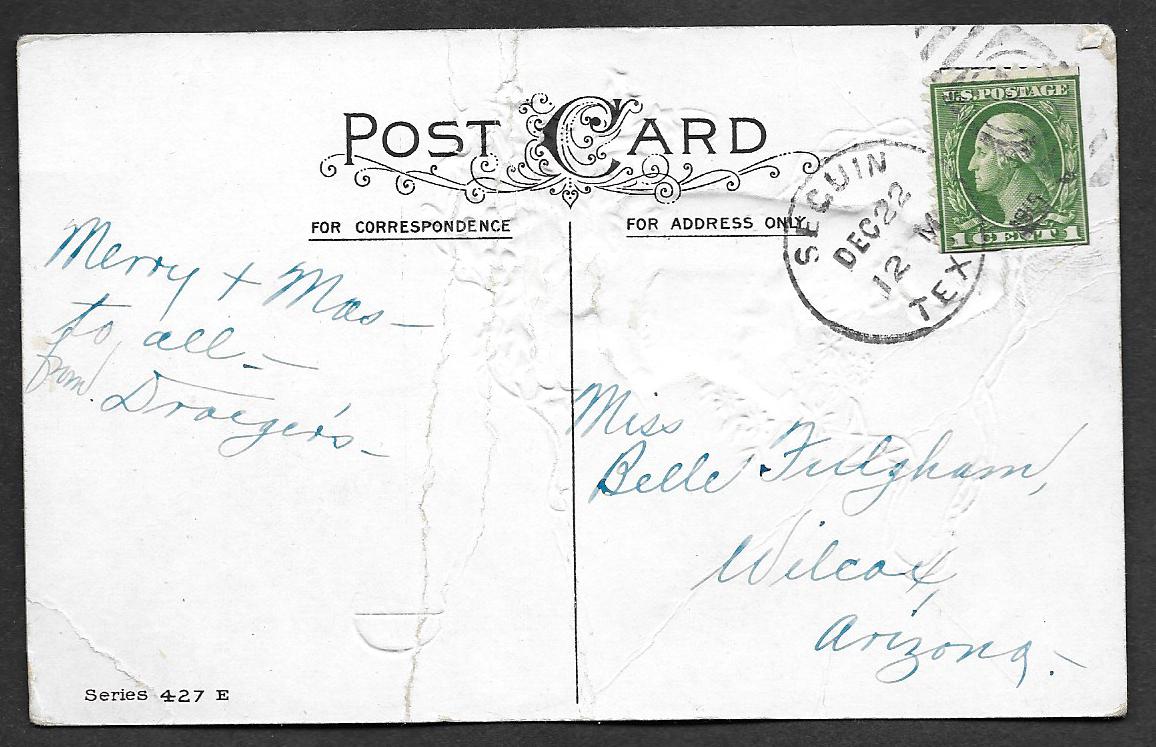 POST CARD
FOR CORRESPONDENCE
FOR ADDRESS ONLY
U.S. POSTAGE
1 CENT 1
SEGUIN
DEC 22
12 M
TEX
Merry + Mas –
to all –
from Draeger's –
Miss
Belle Fulgham,
Wilcox,
Arizona. –
Series 427 E